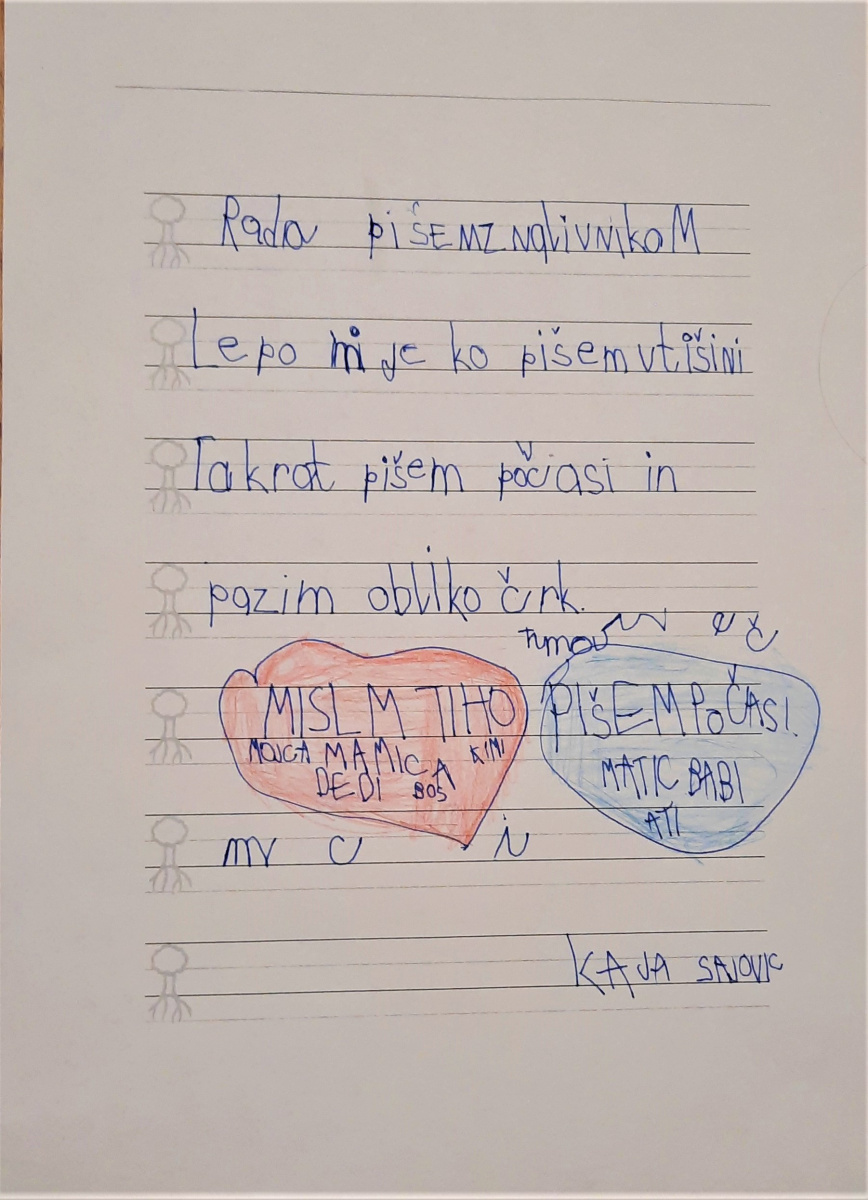 Rada pišEMZ NalivNikoM
Lepo mi je ko pišem v tišini
Takrat pišem počasi in
pazim obliko črk.
MISLM TIHO
PIŠEM POČASI.
MOJCA MAMICA KIMI
DEDI BOS
MATIC BABI
ATI
KAJA SAJOVIC